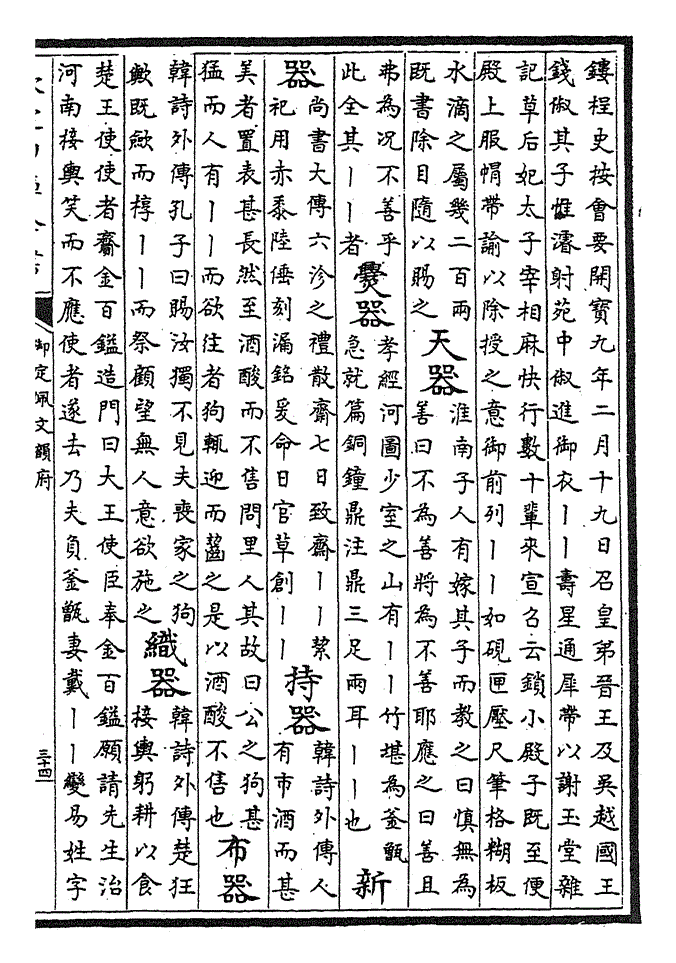 鏤桯史按會要開寶九年二月十九日召皇弟晉王及吳越國王
錢俶其子惟濬射苑中俶進御衣丨丨壽星通犀帶以謝玉堂雜
記草后妃太子宰相麻快行數十輩來宣召云鎖小殿子既至便
殿上服帽帶諭以除授之意御前列丨丨如硯匣壓尺筆格糊板
水滴之屬幾二百兩
既書除目隨以賜之
天器
淮南子人有嫁其子而教之曰慎無為
善曰不為善將為不善耶應之曰善且
弗為况不善乎
此全其丨丨者
爨器
孝經河圖少室之山有丨丨竹堪為釜甑
急就篇銅鐘鼎注鼎三足兩耳丨丨也
新
器
尚書大傳六沴之禮散齋七日致齋丨丨絜
祀用赤黍陸倕刻漏銘爰命日官草創丨丨
持器
韓詩外傳人
有市酒而甚
美者置表甚長然至酒酸而不售問里人其故曰公之狗甚
猛而人有丨丨而欲往者狗輒迎而齧之是以酒酸不售也
布器
韓詩外傳孔子曰賜汝獨不見夫喪家之狗
歟既斂而椁丨丨而祭顧望無人意欲施之
織器
韓詩外傳楚狂
接輿躬耕以食
楚王使使者齎金百鎰造門曰大王使臣奉金百鎰願請先生治
河南接輿笑而不應使者遂去乃夫負釜甑妻戴丨丨變易姓字
御定佩文韻府
三十四